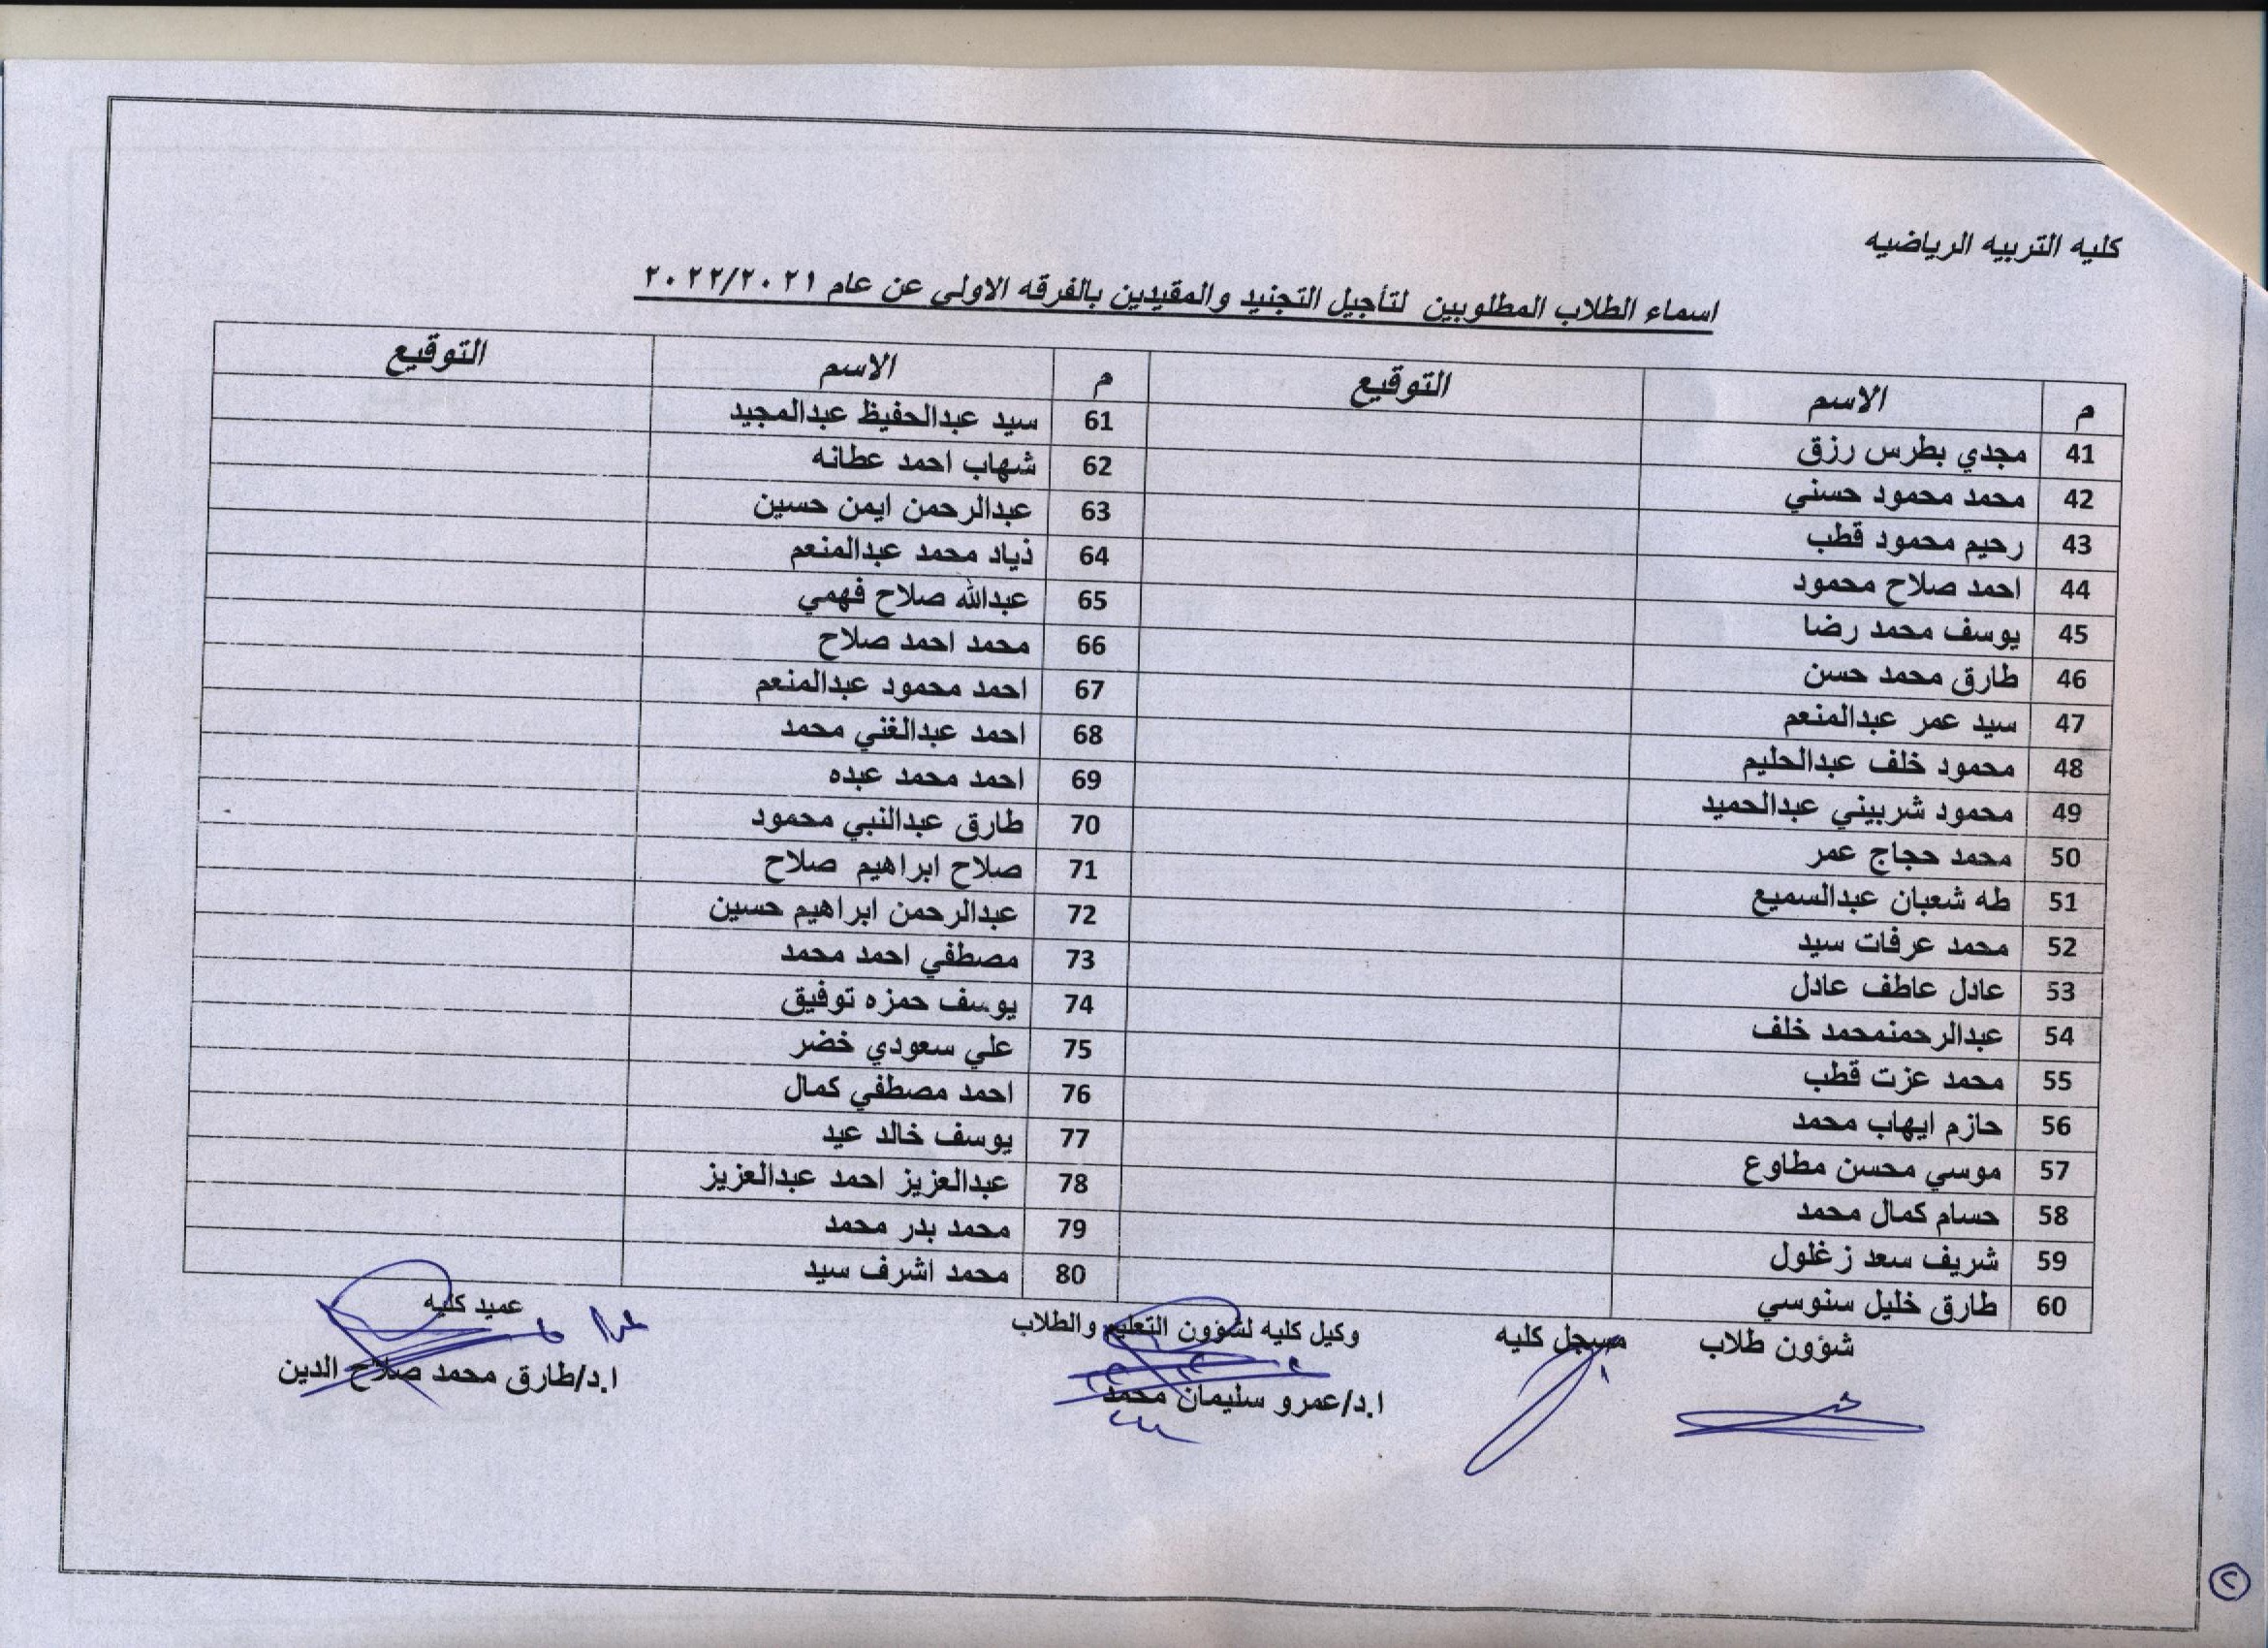 كليه التربيه الرياضيه
اسماء الطلاب المطلوبين لتأجيل التجنيد والمقيدين بالفرقه الاولى عن عام ٢٠٢٢/٢٠٢١
م الاسم التوقيع م الاسم التوقيع
41 مجدي بطرس رزق 61 سيد عبدالحفيظ عبدالمجيد
42 محمد محمود حسني 62 شهاب احمد عطانه
43 رحيم محمود قطب 63 عبدالرحمن ايمن حسين
44 احمد صلاح محمود 64 ذياد محمد عبدالمنعم
45 يوسف محمد رضا 65 عبدالله صلاح فهمي
46 طارق محمد حسن 66 محمد احمد صلاح
47 سيد عمر عبدالمنعم 67 احمد محمود عبدالمنعم
48 محمود خلف عبدالحليم 68 احمد عبدالغني محمد
49 محمود شربيني عبدالحميد 69 احمد محمد عبده
50 محمد حجاج عمر 70 طارق عبدالنبي محمود
51 طه شعبان عبدالسميع 71 صلاح ابراهيم صلاح
52 محمد عرفات سيد 72 عبدالرحمن ابراهيم حسين
53 عادل عاطف عادل 73 مصطفي احمد محمد
54 عبدالرحمنمحمد خلف 74 يوسف حمزه توفيق
55 محمد عزت قطب 75 علي سعودي خضر
56 حازم ايهاب محمد 76 احمد مصطفي كمال
57 موسي محسن مطاوع 77 يوسف خالد عيد
58 حسام كمال محمد 78 عبدالعزيز احمد عبدالعزيز
59 شريف سعد زغلول 79 محمد بدر محمد
60 طارق خليل سنوسي 80 محمد اشرف سيد
شؤون طلاب مسجل كليه وكيل كليه لشؤون التعليم والطلاب عميد كليه
ا.د/عمرو سليمان محمد ا.د/طارق محمد صلاح الدين
٢